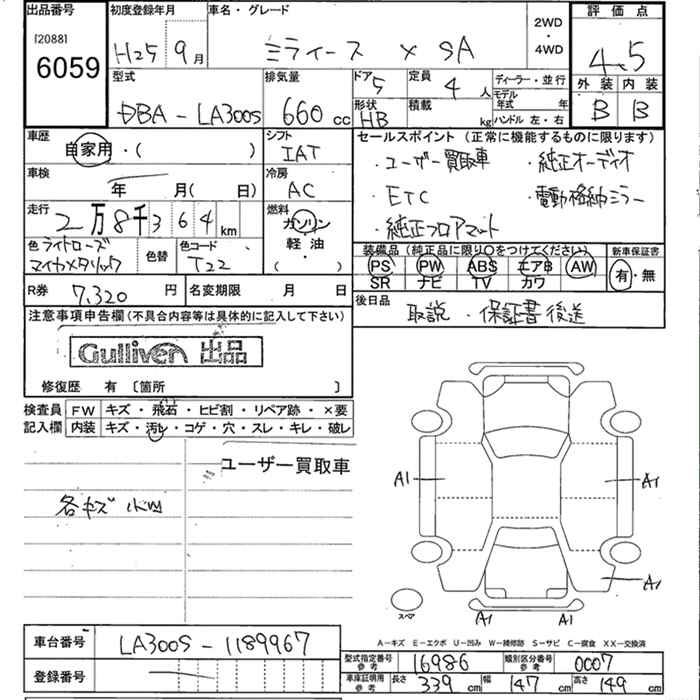 出品番号
[2088]
6059
初度登録年月
H25 9月
車名・グレード
ミライース X SA
2WD
・
4WD
評価点
4.5
外装 内装
B B
型式
DBA-LA300S
排気量
660 cc
ドア 5
形状
HB
定員
4 人
積載
kg
ディーラー・並行
モデル
年式 年
ハンドル 左・右
車歴
自家用・( )
シフト
IAT
車検
年 月( 日)
冷房
AC
走行
2万8千364 km
燃料
ガソリン
軽油
・
( )
色 ライトローズ
マイカメタリック
色替
色コード
T22
R券 7,320 円
名変期限 月 日
セールスポイント (正常に機能するものに限ります)
・ユーザー買取車 ・純正オーディオ
・ETC ・電動格納ミラー
・純正フロアマット
装備品 (純正品に限り○をつけてください)
PS PW ABS エアB AW
SR ナビ TV カワ
新車保証書
有・無
後日品
取説・保証書後送
注意事項申告欄 (不具合内容等は具体的に記入して下さい)
Gulliver 出品
修復歴 有 〔箇所 〕
検査員 FW キズ・飛石・ヒビ割・リペア跡・×要
記入欄 内装 キズ・汚レ・コゲ・穴・スレ・キレ・破レ
ユーザー買取車
各キズ 凹
A1
A1
A1
A1 A1
スペア
A-キズ E-エクボ U-凹み W-補修跡 S-サビ C-腐食 XX-交換済
車台番号 LA300S-1189967
登録番号
型式指定番号
参考
16986
類別区分番号
参考
0007
車庫証明用
参考
長さ 339 cm 幅 147 cm 高さ 149 cm